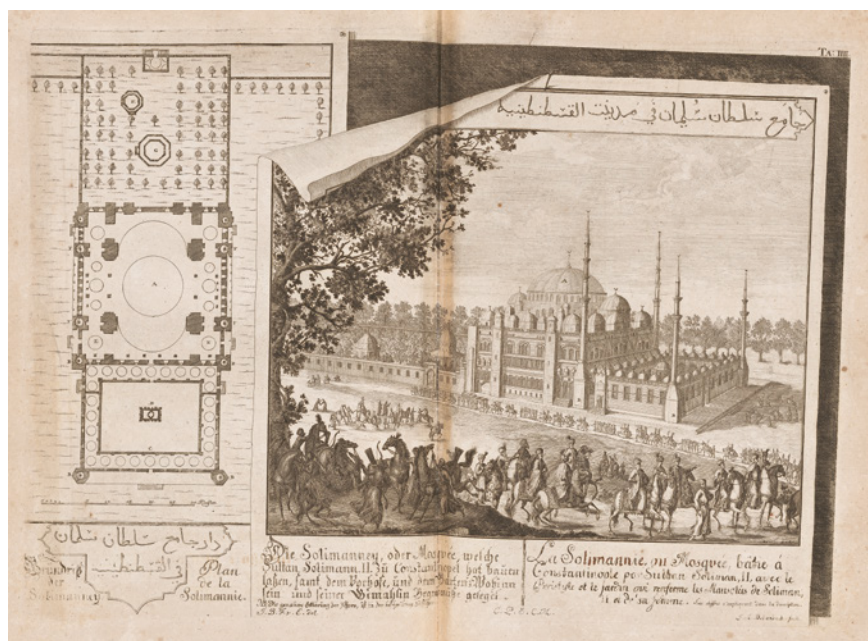 TA: IIII.
جامع سلطان سليمان في مدينت القسطنطينية
دار جامع سلطان سلمان
في القسطنطنيه
Grundriß der Solimanney
Plan de la Solimannie.
Die Solimanney, oder Mosquée, welche
Sultan Solimann. II. zu Constantinopel hat bauen
laßen, samt dem Vorhofe, und dem Garten
sein und seiner Gemahlin Begräbnüße
La Solimannie, ou Mosquée, bâtie à
Constantinople par Sulthan Soliman, II, avec le
Peristyle et le jardin qui renferme les Mausolées de Soliman,
et de sa femme.